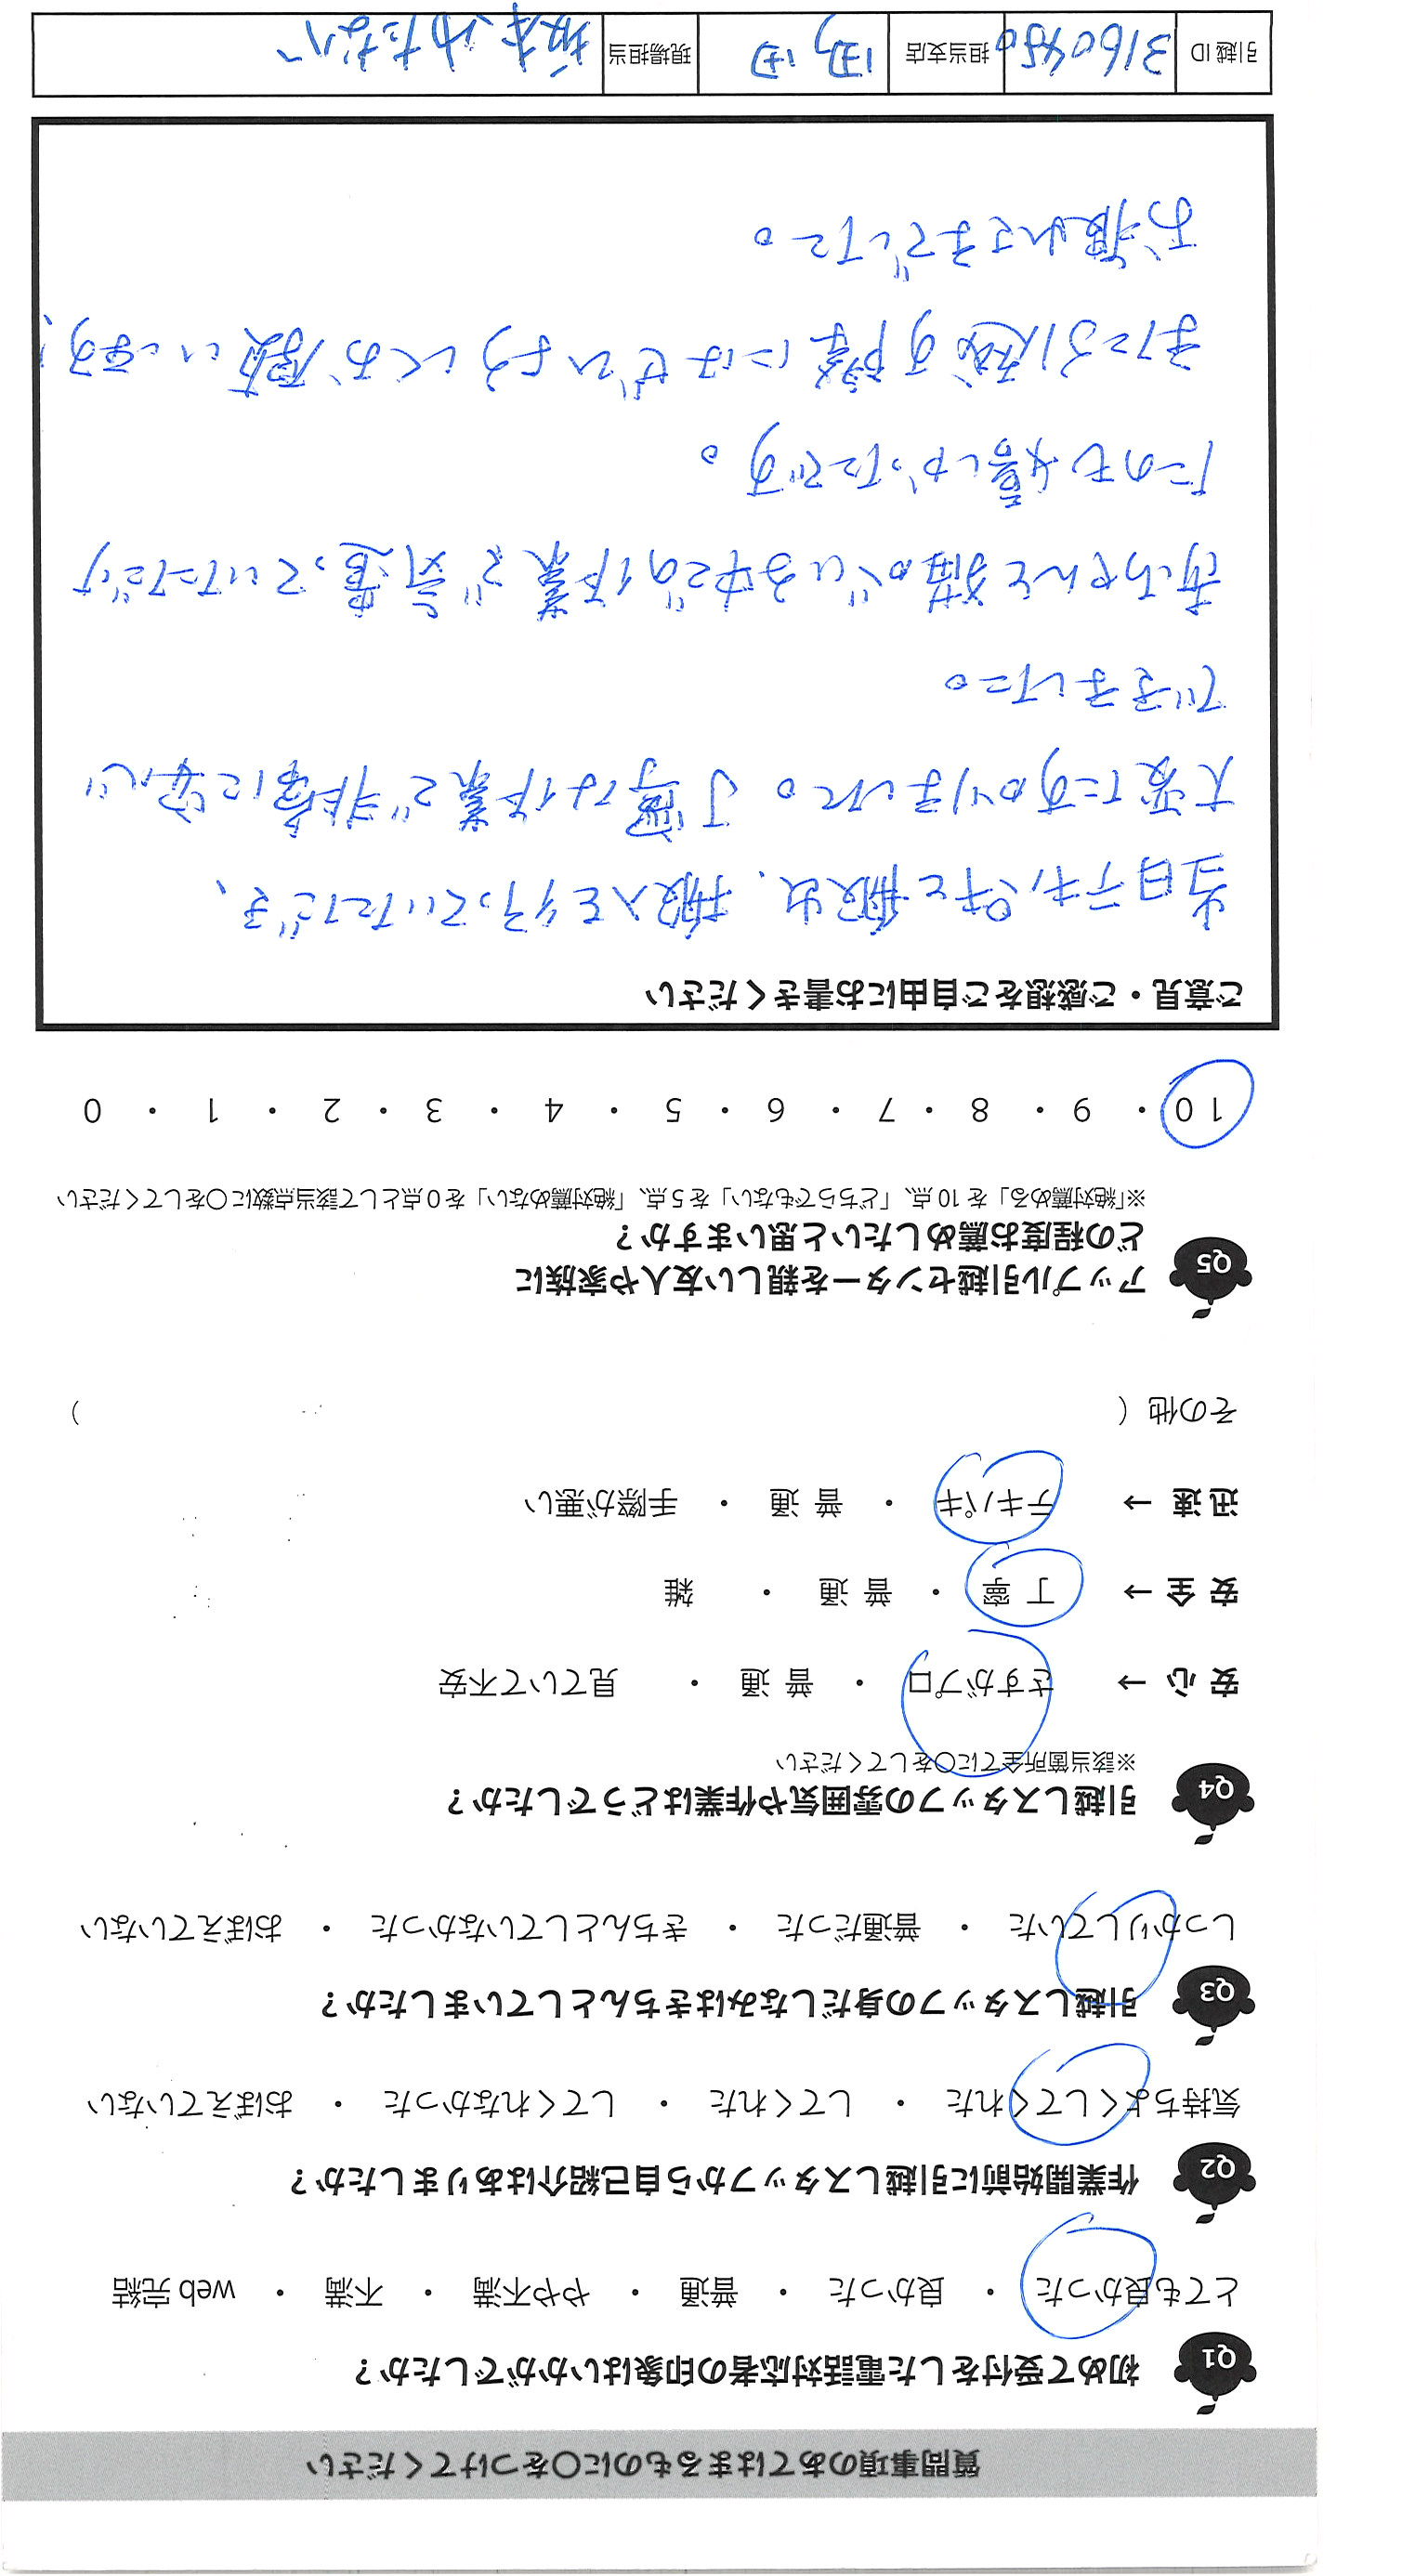 質問事項のあてはまるものに〇をつけてください
Q1 初めて受付をした電話対応者の印象はいかがでしたか？
とても良かった ・ 良かった ・ 普通 ・ やや不満 ・ 不満 ・ web 完結
Q2 作業開始前に引越しスタッフから自己紹介はありましたか？
気持ちよくしてくれた ・ してくれた ・ してくれなかった ・ おぼえていない
Q3 引越しスタッフの身だしなみはきちんとしていましたか？
しっかりしていた ・ 普通だった ・ きちんとしていなかった ・ おぼえていない
Q4 引越しスタッフの雰囲気や作業はどうでしたか？
※該当箇所全てに〇をしてください
安 心 → さすがプロ ・ 普 通 ・ 見ていて不安
安 全 → 丁 寧 ・ 普 通 ・ 雑
迅 速 → テキパキ ・ 普 通 ・ 手際が悪い
その他（ ）
Q5 アップル引越センターを親しい友人や家族に
どの程度お薦めしたいと思いますか？
※「絶対薦める」を 10 点、「どちらでもない」を 5 点、「絶対薦めない」を 0 点として該当点数に〇をしてください
10 ・ 9 ・ 8 ・ 7 ・ 6 ・ 5 ・ 4 ・ 3 ・ 2 ・ 1 ・ 0
ご意見・ご感想をご自由にお書きください
当日テキパキと搬出、搬入を行っていただき、
大変たすかりました。丁寧な作業で非常に安心
できました。
赤ちゃんと猫がいる中での作業で気遣っていただけ
たのも嬉しかったです。
また引越す際にはぜひよろしくお願いします！
お疲れさまでした。
引越 ID 3160450 担当支店 現場担当